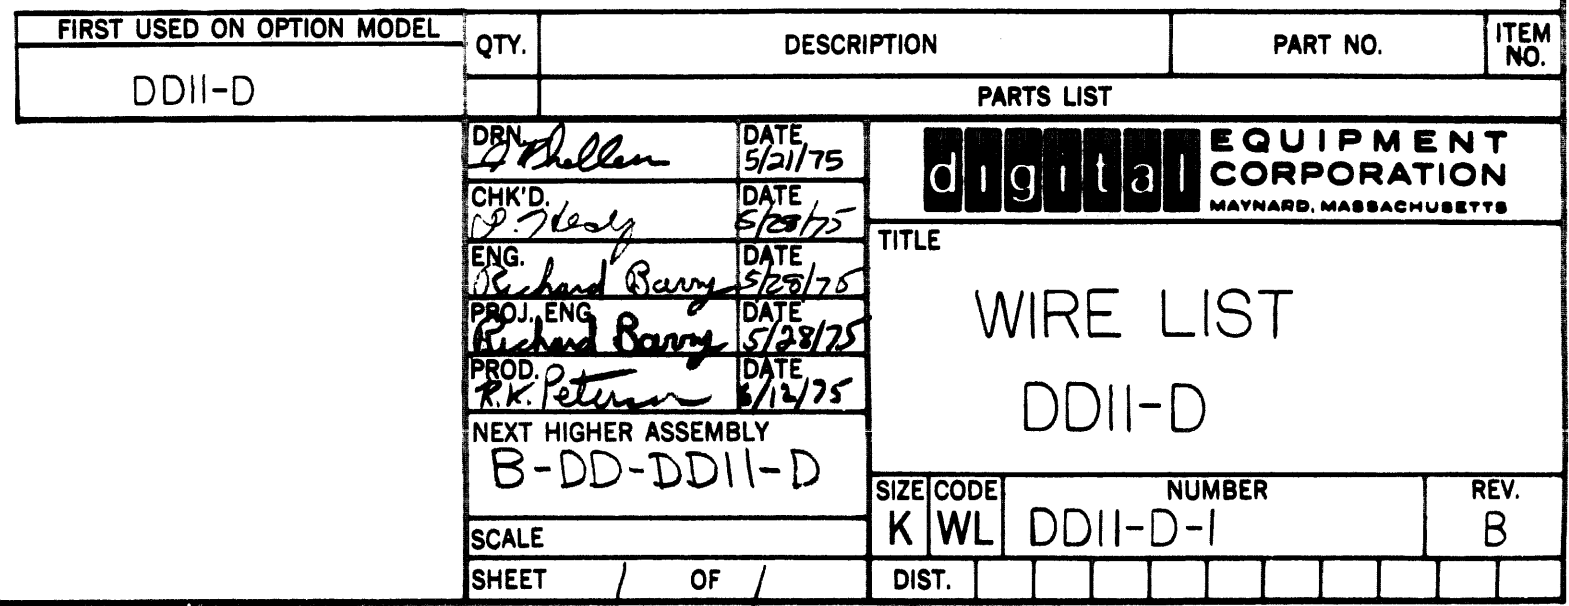 FIRST USED ON OPTION MODEL
DD11-D
QTY. DESCRIPTION PART NO. ITEM NO.
PARTS LIST
DRN. DATE
5/21/75
CHK'D. DATE
5/28/75
ENG. DATE
Richard Barry 5/28/75
PROJ. ENG. DATE
Richard Barry 5/28/75
PROD. DATE
R.K. Peterson 6/12/75
NEXT HIGHER ASSEMBLY
B-DD-DD11-D
SCALE
SHEET 1 OF 1
digital EQUIPMENT
CORPORATION
MAYNARD, MASSACHUSETTS
TITLE
WIRE LIST
DD11-D
SIZE CODE NUMBER REV.
K WL DD11-D-1 B
DIST.